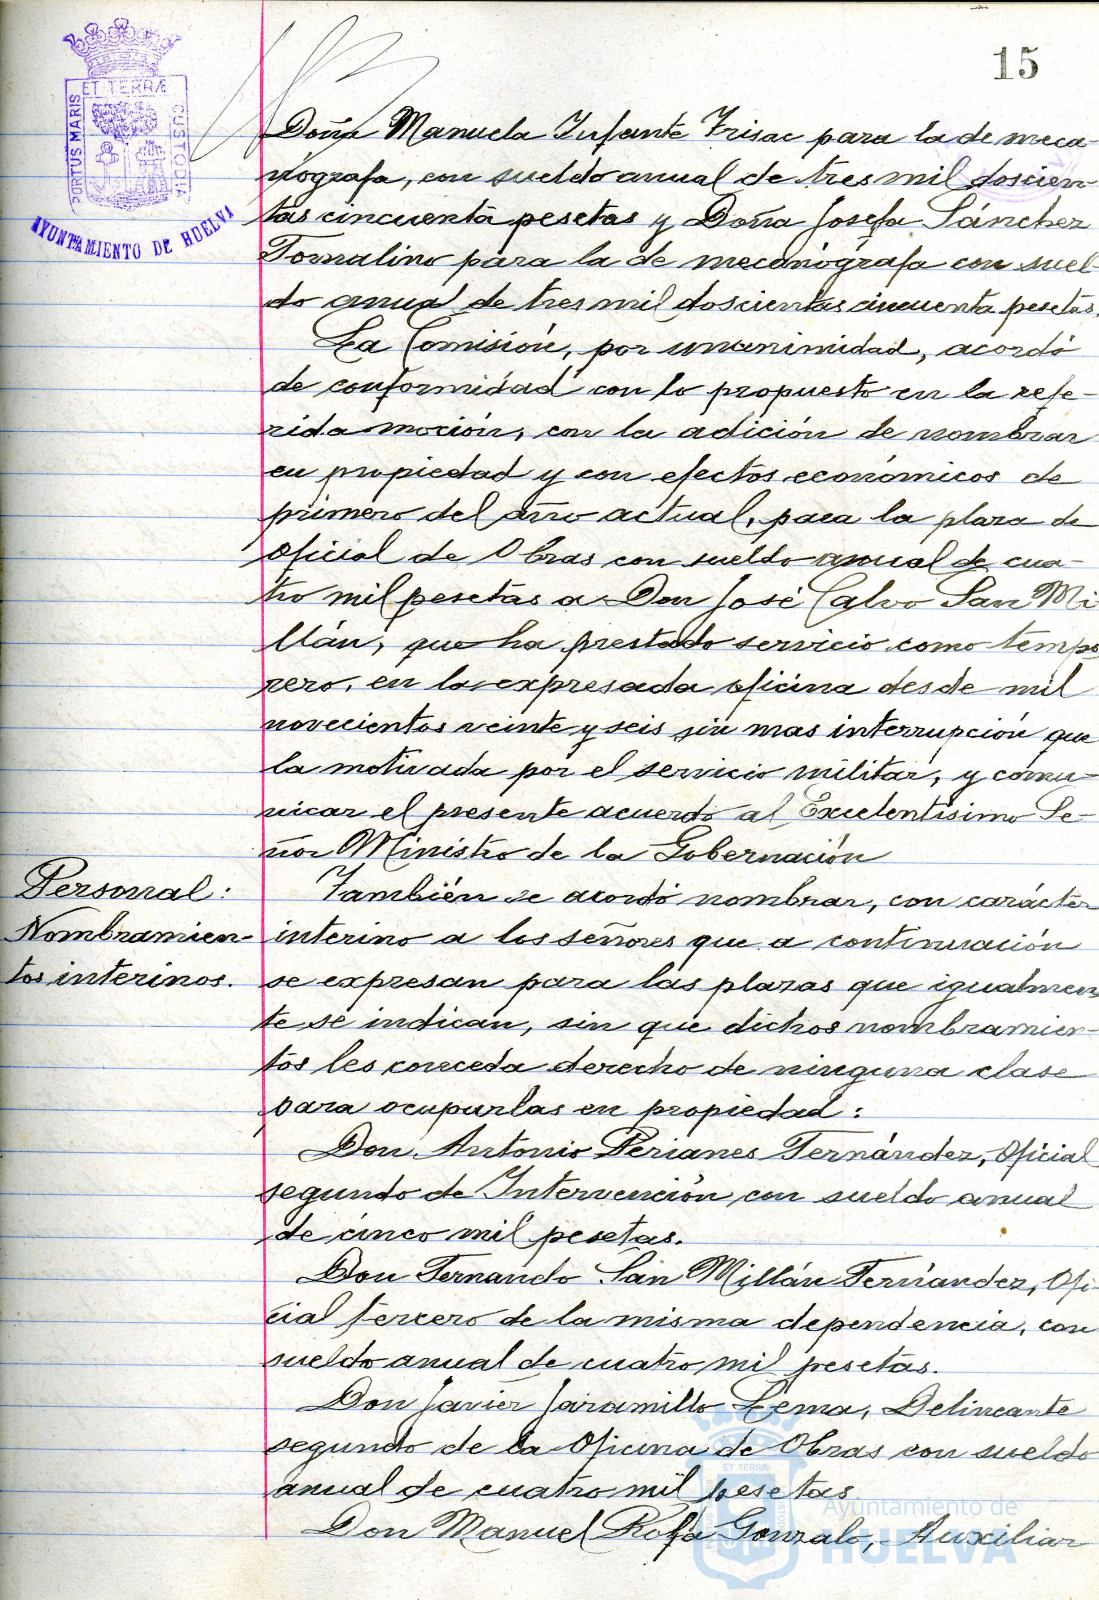 15
ET TERRÆ
PORTUS MARIS
CUSTODIA
AYUNTAMIENTO DE HUELVA
Doña Manuela Infante Frisac para la de meca-
nógrafa, con sueldo anual de tres mil doscien-
tas cincuenta pesetas y Doña Josefa Sánchez
Tornalino para la de mecanógrafa con suel-
do anual de tres mil doscientas cincuenta pesetas.
La Comisión, por unanimidad, acordó
de conformidad con lo propuesto en la refe-
rida moción, con la adición de nombrar
en propiedad y con efectos económicos de
primero del año actual, para la plaza de
Oficial de Obras con sueldo anual de cua-
tro mil pesetas a Don José Calvo San Mi
llán, que ha prestado servicio como tempo
rero, en la expresada oficina desde mil
novecientos veinte y seis sin mas interrupción que
la motivada por el servicio militar, y comu-
nicar el presente acuerdo al Excelentísimo Se-
ñor Ministro de la Gobernación
Personal:
Nombramien-
tos interinos.
También se acordó nombrar, con carácter
interino a los señores que a continuación
se expresan para las plazas que igualmen
te se indican, sin que dichos nombramien-
tos les conceda derecho de ninguna clase
para ocuparlas en propiedad:
Don Antonio Perianes Fernández, Oficial
segundo de Intervención con sueldo anual
de cinco mil pesetas.
Don Fernando San Millán Fernández, Ofi-
cial tercero de la misma dependencia, con
sueldo anual de cuatro mil pesetas.
Don Javier Jaramillo Lema, Delineante
segundo de la Oficina de Obras con sueldo
anual de cuatro mil pesetas
Don Manuel Rofa Gonzalo, Auxiliar
Ayuntamiento de
HUELVA